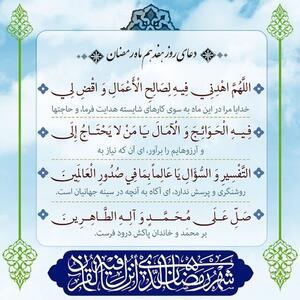 دعای روز هفدهم ماه رمضان
اللَّهُمَّ اهْدِنِي فِيهِ لِصَالِحِ الْأَعْمَالِ وَ اقْضِ لِي
خدایا مرا در این ماه به سوی کارهای شایسته هدایت فرما، و حاجتها
فِيهِ الْحَوَائِجَ وَ الْآمَالَ يَا مَنْ لَا يَحْتَاجُ إِلَى
و آرزوهایم را برآور، ای آن که نیاز به
التَّفْسِيرِ وَ السُّؤَالِ يَا عَالِماً بِمَا فِي صُدُورِ الْعَالَمِينَ
روشنگری و پرسش ندارد، ای آگاه به آنچه در سینه جهانیان است.
صَلِّ عَلَى مُحَمَّدٍ وَ آلِهِ الطَّاهِرِينَ
بر محمد و خاندان پاکش درود فرست.
شهر رمضان الذی انزل فیه القرآن